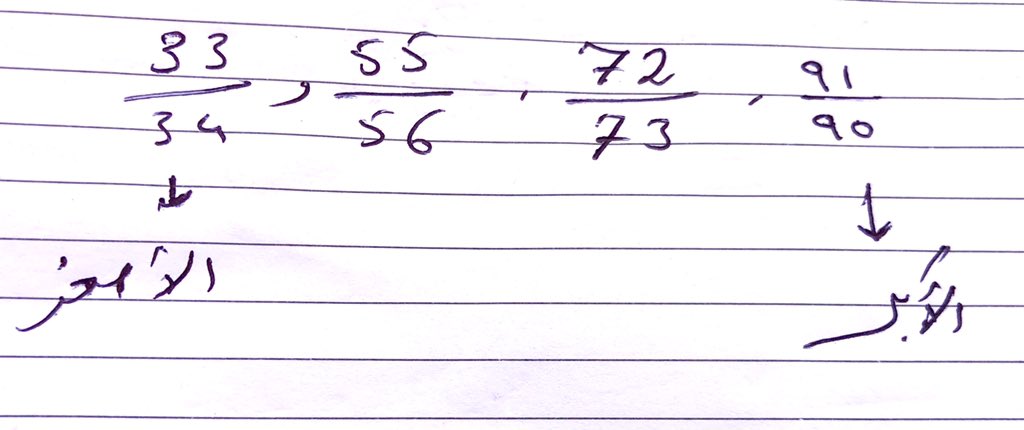 33/34 , 55/56 , 72/73 , 91/90
الأصغر الأكبر